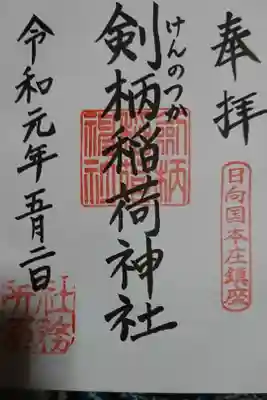 奉拝
日向国本庄鎮座
けんのつか
剣柄稲荷神社
令和元年五月二日
社務所